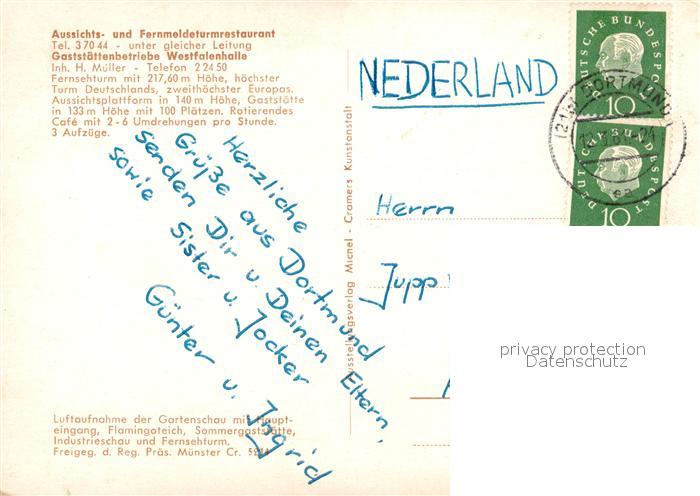 Aussichts- und Fernmeldeturmrestaurant
Tel. 3 70 44 - unter gleicher Leitung
Gaststättenbetriebe Westfalenhalle
Inh. H. Müller - Telefon 2 24 50
Fernsehturm mit 217,60 m Höhe, höchster
Turm Deutschlands, zweithöchster Europas.
Aussichtsplattform in 140 m Höhe, Gaststätte
in 133 m Höhe mit 100 Plätzen. Rotierendes
Café mit 2 - 6 Umdrehungen pro Stunde.
3 Aufzüge.
Herzliche
Grüße aus Dortmund
senden Dir u. Deinen Eltern,
sowie Sister u. Jocker
Günter u. Ingrid
Luftaufnahme der Gartenschau mit Haupt-
eingang, Flamingoteich, Sommergaststätte,
Industrieschau und Fernsehturm.
Freigeg. d. Reg. Präs. Münster Cr.
Ausstellungsverlag Michel - Cramers Kunstanstalt
NEDERLAND
DEUTSCHE BUNDESPOST
10
DEUTSCHE BUNDESPOST
10
DORTMUND
Herrn
Jupp
privacy protection
Datenschutz